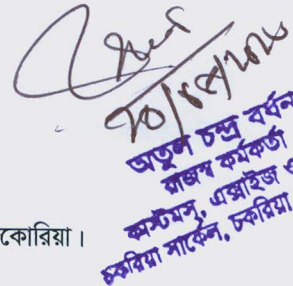 অতুল চন্দ্র বর্ধন
রাজস্ব কর্মকর্তা
কাস্টমস, এক্সাইজ ও
চকরিয়া সার্কেল, চকরিয়া
কোরিয়া।